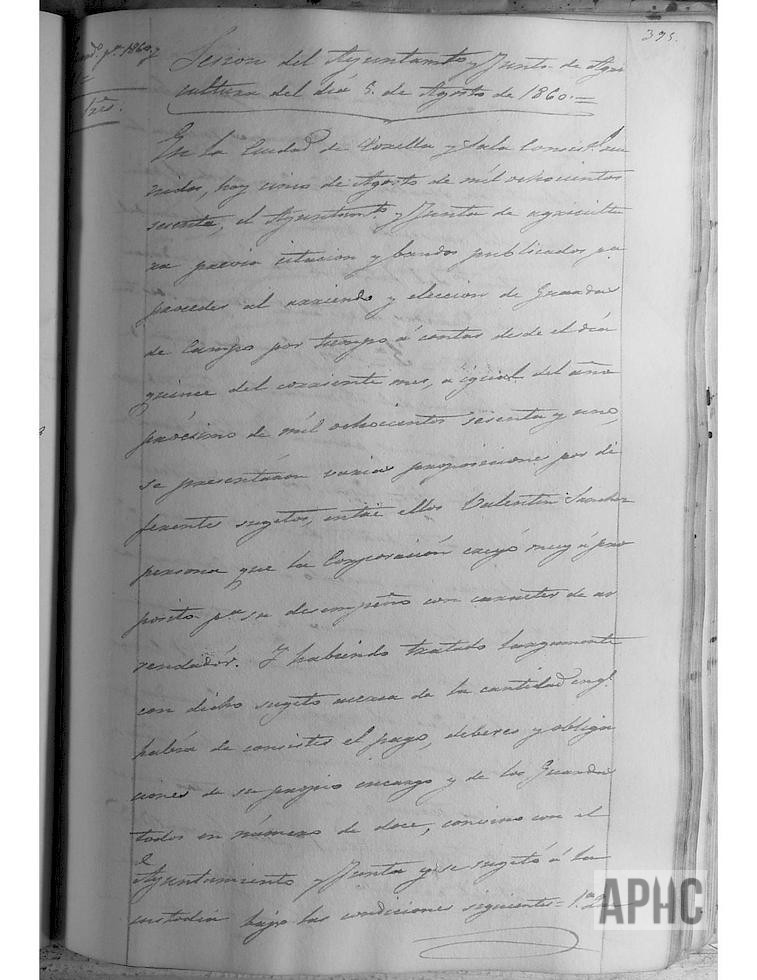 395.
pª. 1860. y
Sesion del Ayuntamto y Junta de Agri
cultura del dia 5 de Agosto de 1860.=
En la Ciudad de Corella y Sala Consistl. reu
nidos, hoy cinco de Agosto de mil ochocientos
sesenta, el Ayuntamto y Junta de agricultu
ra previa citacion y bandos publicados pa
proceder al arriendo y eleccion de Guardas
de Campo por tiempo á contar desde el dia
quince del corriente mes, a igual del año
procsimo de mil ochocientos sesenta y uno,
se presentaron varias proposiciones por di
ferentes sugetos, entre ellos Valentin Sanchez
persona que la Corporacion creyó muy á pro
posito pª su desempeño con caracter de ar
rendador. Y habiendo tratado largamente
con dicho sugeto acerca de la cantidad en q.
habia de consistir el pago, deberes y obliga
ciones de su propio encargo y de los Guardas
todos en número de doce, convino con el
Ayuntamiento y Junta y se sugetó á la
custodia bajo las condiciones siguientes= 1ª
APHC